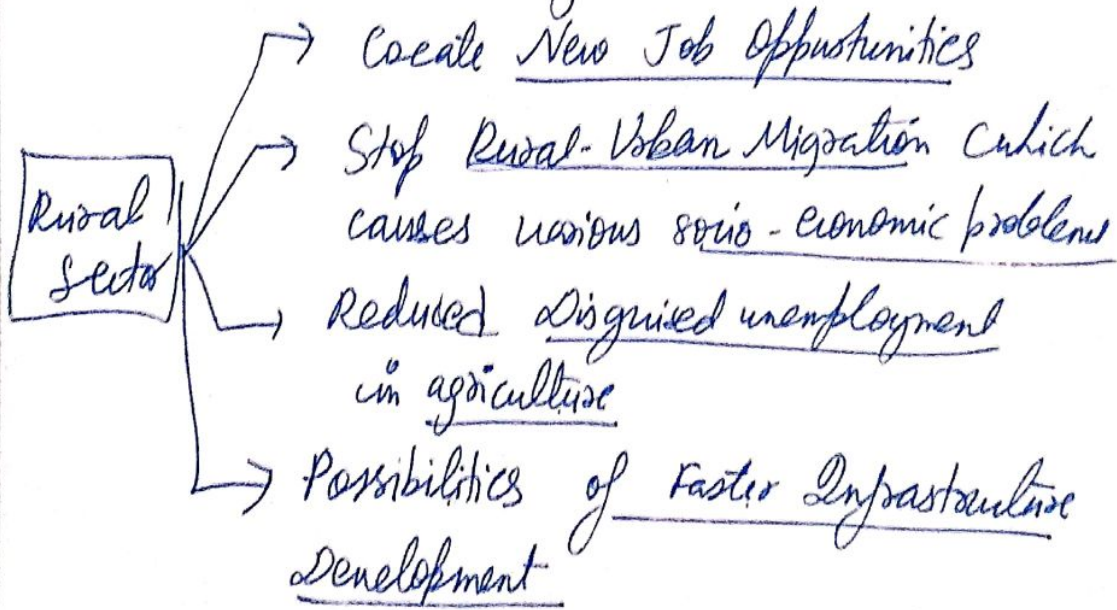 Create New Job Oppurtunities
Stop Rural-Urban Migration (which
causes various socio-economic problems
Rural
Sector
Reduced Disguised unemployment
in agriculture
Possibilities of Faster Infrastructure
Development